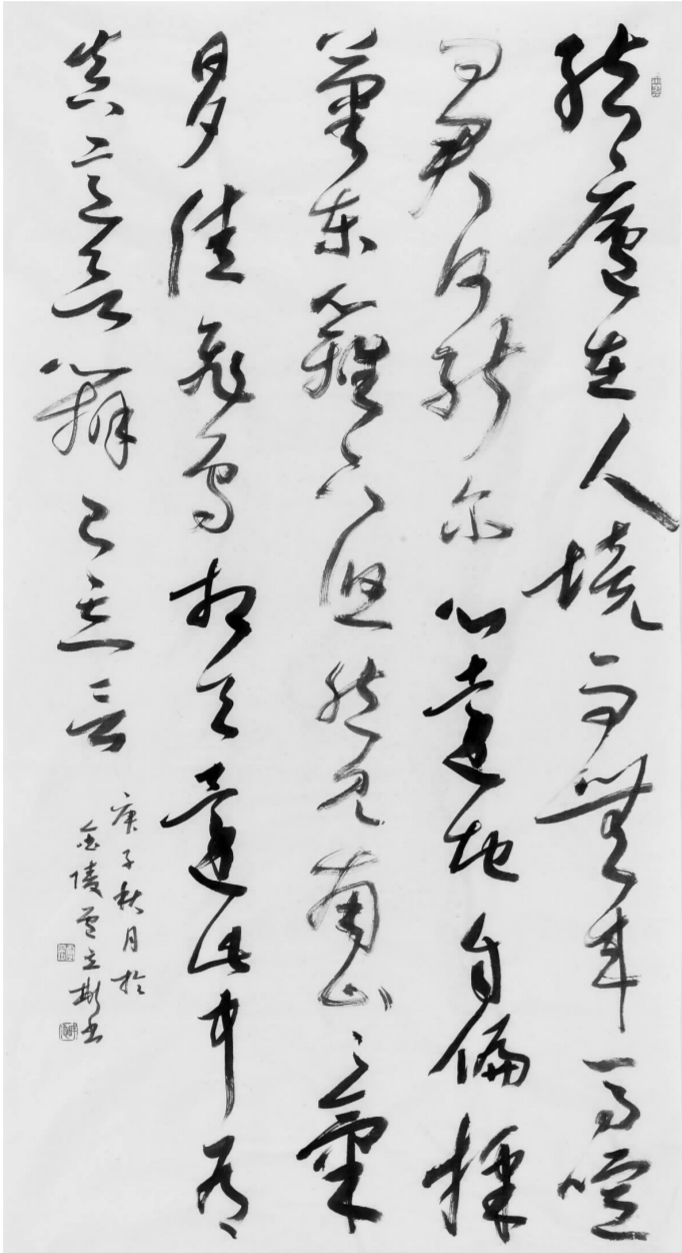 結廬在人境而無車馬喧
問君何能尔心遠地自偏採
菊東籬下悠然見南山〻氣
日夕佳飛鳥相与還此中有
真意欲辨已忘言
庚子秋月於
金陵立书